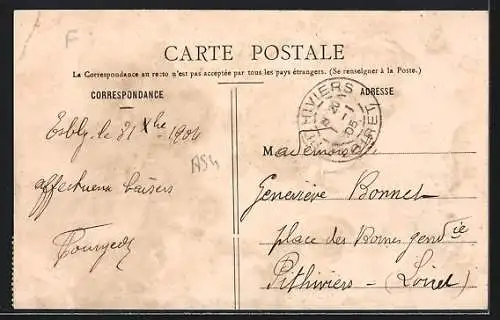 F
CARTE POSTALE
La Correspondance au recto n'est pas acceptée par tous les pays étrangers. (Se renseigner à la Poste.)
CORRESPONDANCE
ADRESSE
PITHIVIERS
LOIRET
05
Esbly, le 31 Xbre 1904
A54
affectueux baisers
Mademoiselle
Geneviève Bonnet
place des Bornes gend rie
Pithiviers - (Loiret)